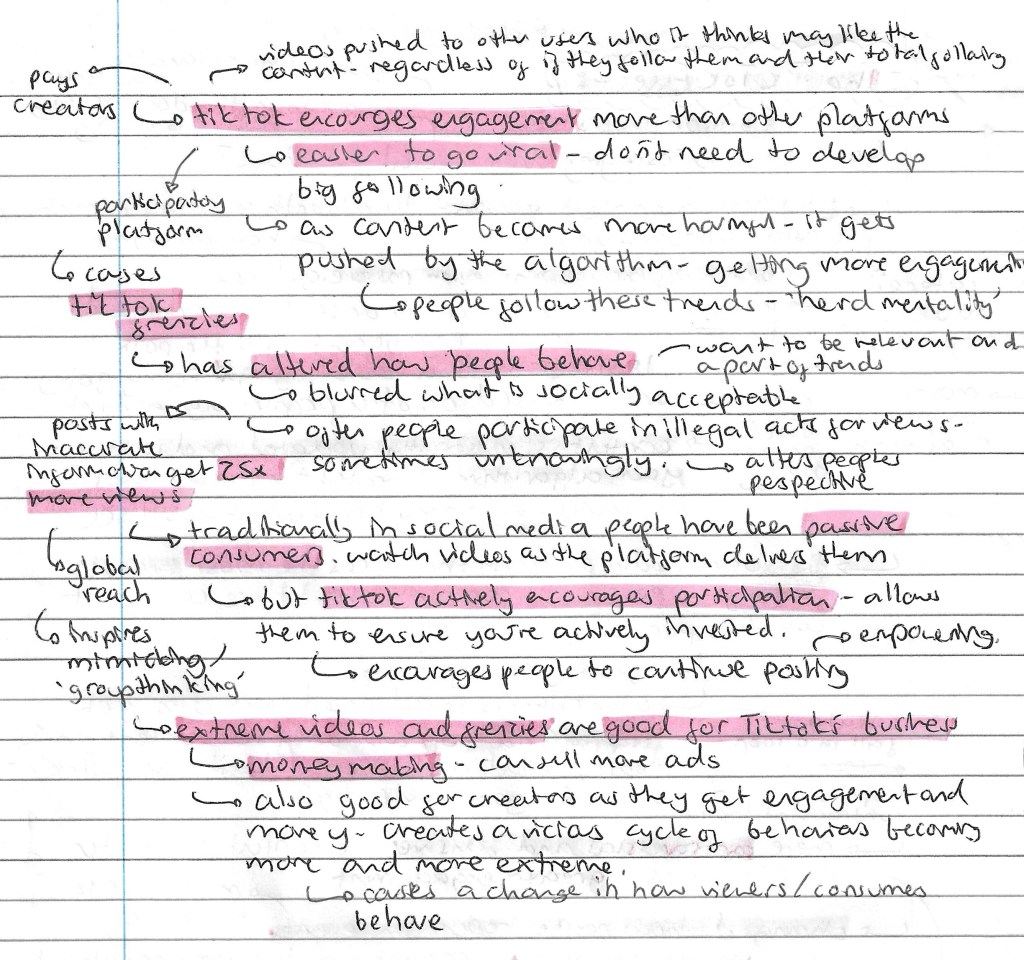 videos pushed to other users who it thinks may like the
content - regardless of if they follow them and their total following
pays
creators
tiktok encourges engagement more than other platforms
easier to go viral - don't need to develop
big following
participatory
platform
as content becomes more harmful - it gets
pushed by the algorithm - getting more engagement
cases
tiktok
frenzies
people follow these trends - 'herd mentality'
has altered how people behave
want to be relevant and
a part of trends
blurred what is socially acceptable
posts with
inaccurate
information get 25x
more views
often people participate in illegal acts for views -
sometimes unknowingly.
alters peoples
perspective
traditionally in social media people have been passive
consumers. watch videos as the platform delivers them
global
reach
but tiktok actively encourages participation - allows
them to ensure you're actively invested.
empowering
inspires
mimicking/
'groupthinking'
encourages people to continue posting
extreme videos and frenzies are good for Tiktok's business
money making - can sell more ads
also good for creators as they get engagement and
money - creates a vicious cycle of behaviors becoming
more and more extreme.
causes a change in how viewers/consumes
behave